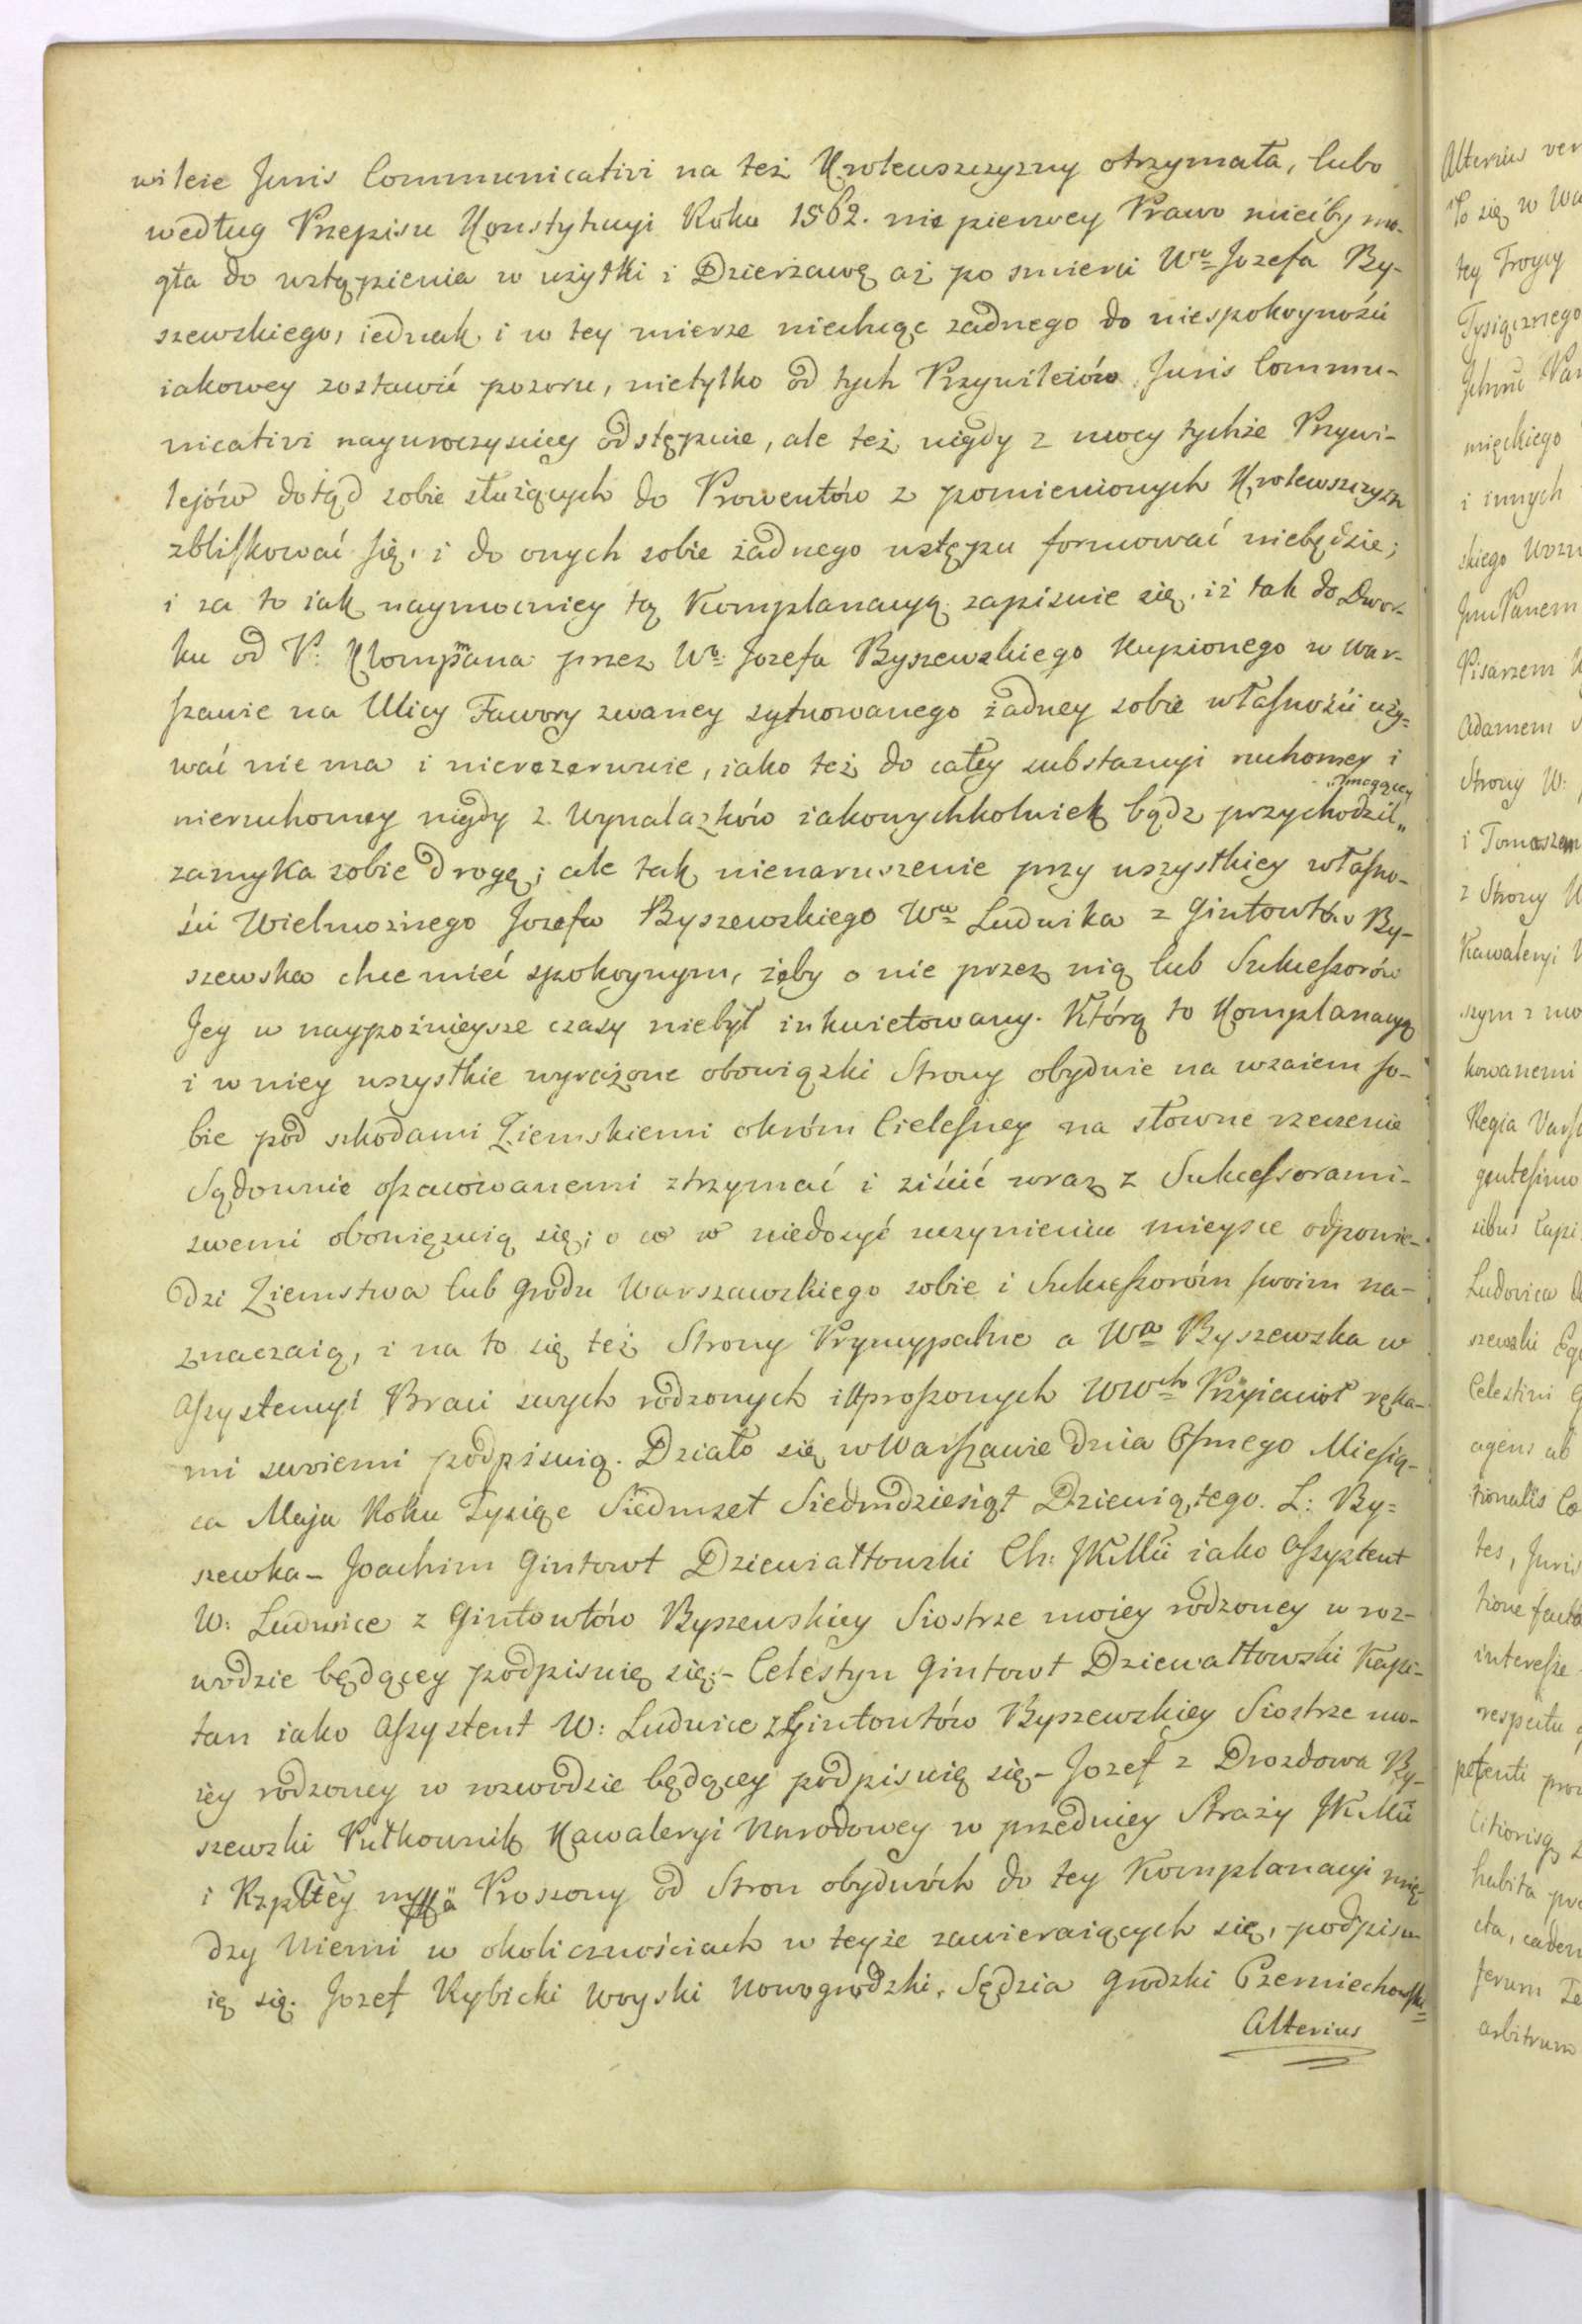 wileie Juris Communicativi na też Krolewszczyzny otrzymała, lubo
według Przepisu Konstytucyi Roku 1562. nie pierwey Prawo miećby mo-
gła do wstąpienia w użytki i Dzierżawę aż po smierci Wo Jozefa By-
szewskiego, iednak i w tey mierze niechcąc zadnego do niespokoyności
iakowey zostawić pozoru, nietylko od tych Przywileiów Juris Commu-
nicativi nayuroczyściey odstępuie, ale też nigdy z mocy tychże Przywi-
lejów dotąd sobie służących do Prowentów z pomienionych Krolewszczyzn
zbliskować się, i do onych sobie żadnego wstępu formować niebędzie;
i za to iak naymocniey tą Komplanacyą zapisuie się, iż tak do Dwor-
ku od P: Klompmana przez Wo Jozefa Byszewskiego kupionego w War-
szawie na Ulicy Fawory zwaney sytuowanego żadney sobie własności uży-
wać nie ma i nierezerwuie, iako też do całey substancyi ruchomey i
nieruchomey nigdy z Wynalazków iakowychkolwiek bądz przychodzić „mogącey
zamyka sobie drogę; ale tak nienaruszenie przy wszystkiey własno-
ści Wielmożnego Jozefa Byszewskiego Wa Ludwika z Gintowtów By-
szewska chce mieć spokoynym, żeby o nie przez nią lub Sukcessorów
Jey w naypożnieysze czasy niebył inkwietowany. Którą to Komplanacyą
i w niey wszystkie wyrażone obowiązki Strony obydwie na wzaiem so-
bie pod szkodami Ziemskiemi okróm Cielesney na słowne rzeczenie
Sądownie oszacowanemi ztrzymać i ziścić wraz z Sukcessorami
swemi obowięzuią się; o co w niedosyć uczynieniu mieysce odpowie-
dzi Ziemstwa lub Grodu Warszawskiego sobie i Sukcessoróm swoim na-
znaczaią, i na to się też Strony Pryncypalne a Wa Byszewska w
Assystencyi Braci swych rodzonych i Uproszonych WWch Przyiaciół ręka-
mi swoiemi podpisuią. Działo się w Warszawie dnia Osmego Miesią-
ca Maja Roku Tysiąc Siedmset Siedmdziesiąt Dziewiątego. L: By-
szewka – Joachim Gintowt Dziewiałtowski Ch: JKMci iako Assystent
W: Ludwice z Gintowtów Byszewskiey Siostrze moiey rodzoney w roz-
wodzie będącey podpisuię się. – Celestyn Gintowt Dziewałtowski Kapi-
tan iako Assystent W: Ludwice z Gintowtów Byszewskiey Siostrze mo-
iey rodzoney w rozwodzie będącey podpisuię się – Jozef z Drozdowa By-
szewski Pułkownik Kawaleryi Narodowey w przedniey Straży JKMci
i Rzpltey Proszony od Stron obydwóch do tey Komplanacyi mię-
dzy Niemi w okolicznościach w teyże zawieraiących się, podpisu-
ię się. Jozef Rybicki Woyski Nowogrodzki, Sędzia Grodzki Czerniechowski
Alterius